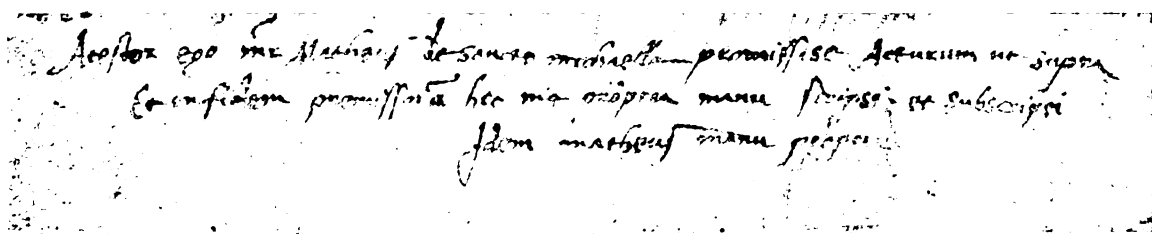 Atestor ego mr Matheus de sancto michaelle promissise Acturum ut supra
Et in fidem promissorum hec mea propria manu scripsi et subscripsi
Idem matheus manu propria